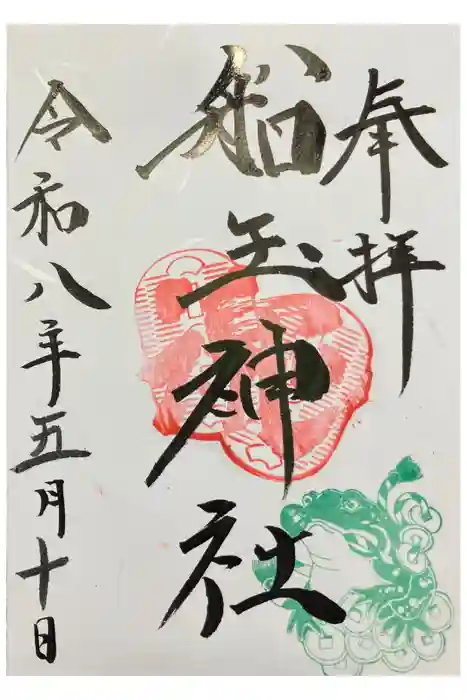 奉拝
船玉神社
令和八年五月十日